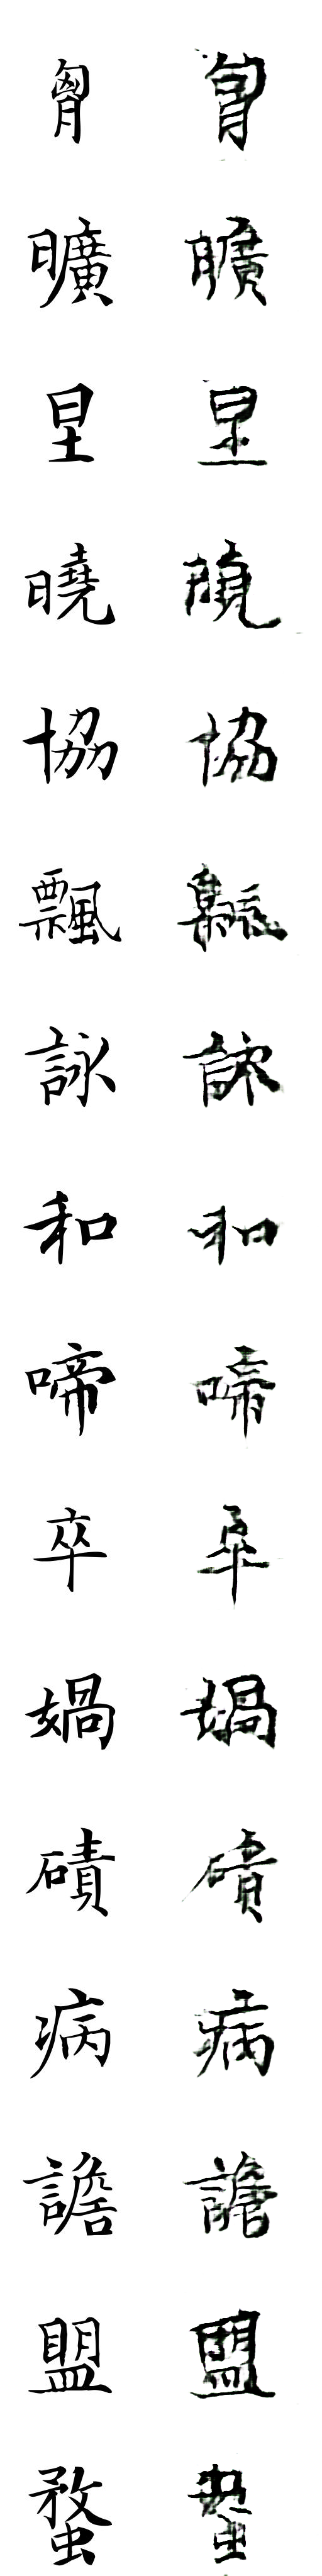 胷
曠 曠
圼 圼
曉 曉
協 協
飄
詠 詠
和 和
啼 啼
卒
媧 媧
磧 磧
病 病
譫 譫
盟 盟
蝥